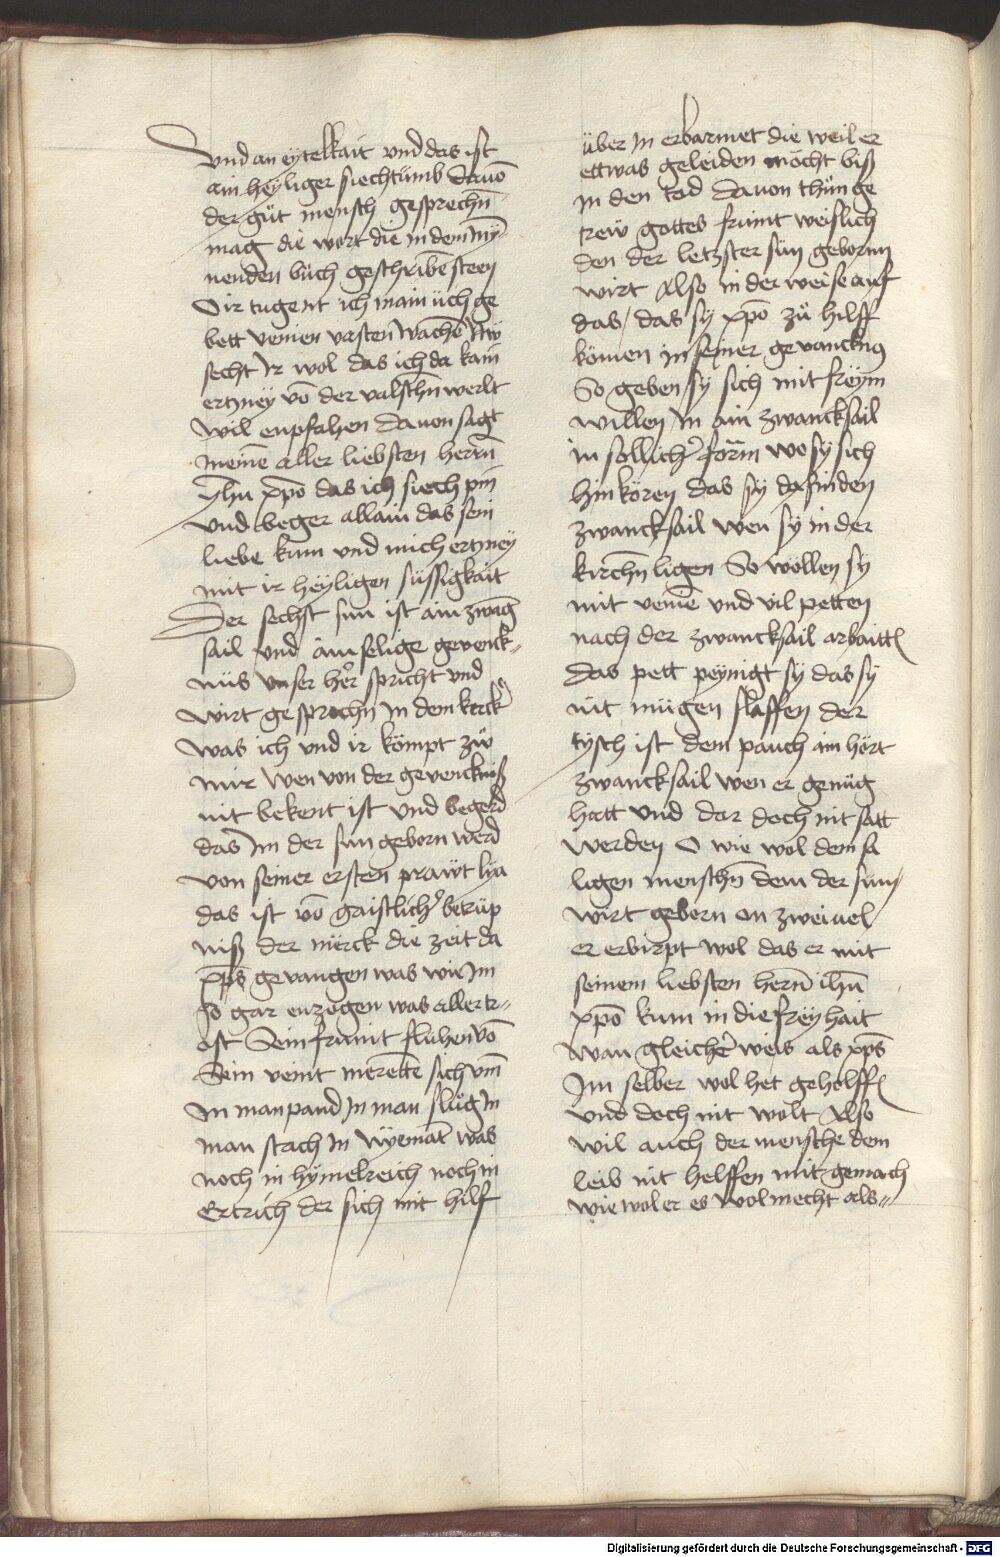 Und an eÿtelkait und das ist
ain heÿliger siechtumb dauō
der gůt mensch gesprechn̄
mag die wort die in dem mÿ
nenden bůch geschriben steen
O ir tugent ich main ůch ge
bett venien vasten wachē Nw
secht Ir wol das ich da kain
ertzney vō der valschn̄ werlt
wil enpfahen dauon sagt
meinē aller liebsten herrn̄
yhū xpō das ich siech pin
und beger allain das sein
liebe kum und mich ertzney
mit ir heÿligen süssigkait
Der sechst sun ist ain zwāg
sail und ain selige gevenck
nüs unser herr spricht und
wirt gesprochn̄ In dem kercker
was ich und ir kompt zů
mir wen von der gevencknis
nit bekent ist und begerd
das Im der sun geborn werd
von seiner ersten prawt lya
das ist vō gaistlicher betrüp
niß der mërck die zeit da
xp̄s gevangen was wie Im
so gar enzogen was aller tr
ost Sein frunt fluhen vō
Sein veint meretē sich vm̄
In man pand In man slůg In
man stach In Nÿemāt was
noch in hÿmelreich noch in
Ertrich der sich mit hilf
über In erbarmet die weil er
ettwas geleiden möcht biß
in den tod dauon thůn ge
trew gottes frunt weislich
den der letzster sun geborn
wirt Also in der weise auf
das das sy xpō zů hilff
komen in seiner gevancknus
So geben sy sich mit freÿm
willen In ain zwancksail
in sollicher form wo sy sich
hin kören das sy da finden
zwancksail wen sy in der
kirchn̄ ligen So wöllen sy
mit veniē und vil petten
nach der zwancksail arbaittn
das pett peynigt sy das sy
nit mügen slaffen der
tysch ist dem pauch ain hört
zwancksail wen er genůg
hatt und dar doch nit satt
werden O wie wol dem sä
ligen menschn̄ dem der sun
wirt geborn on zweiuel
er erbirpt wol das er mit
seinem liebsten hern̄ ihū
xpō kum in die freÿhait
wan gleicher weis als xp̄s
Im selber wol het geholffn
und doch nit wolt Also
wil auch der mensche dem
leib nit helffen mit gemach
wie wol er es wol mecht als
Digitalisierung gefördert durch die Deutsche Forschungsgemeinschaft - DFG